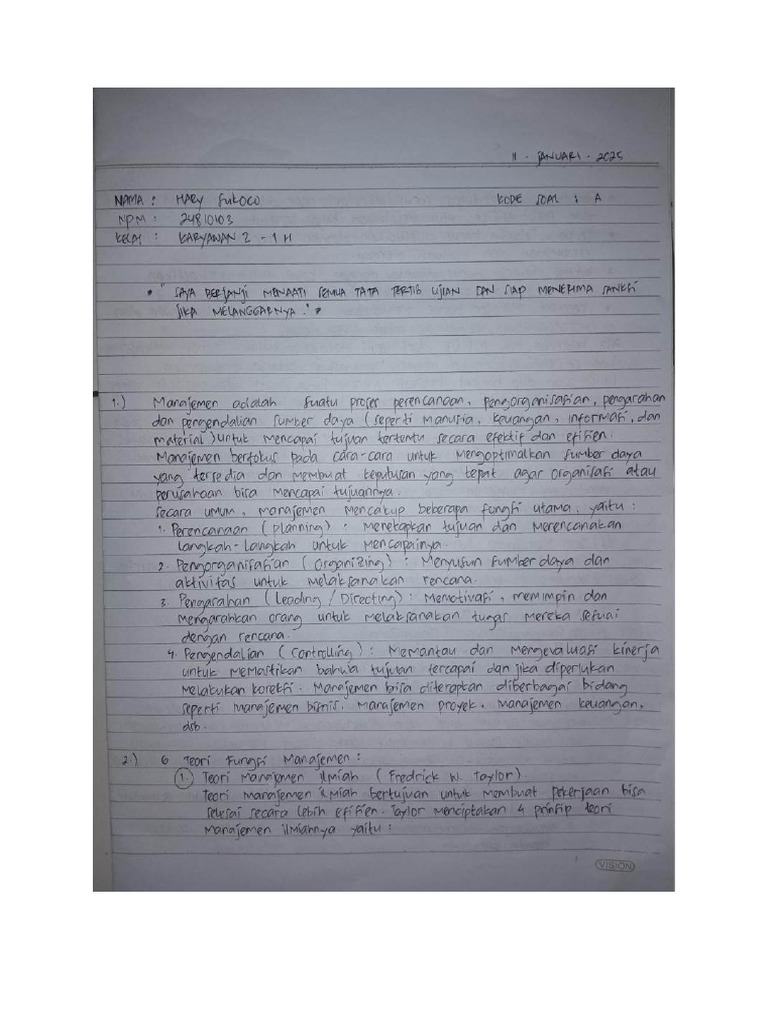 11 - JANUARI - 2025
NAMA : HARY SUKOCO KODE SOAL : A
NPM : 24810103
KELAS : KARYAWAN 2 - 1 H
• "SAYA BERJANJI MENAATI SEMUA TATA TERTIB UJIAN DAN SIAP MENERIMA SANKSI
JIKA MELANGGARNYA."
1.) Manajemen adalah suatu proses perencanaan, pengorganisasian, pengarahan
dan pengendalian sumber daya (seperti manusia, keuangan, informasi, dan
material) untuk mencapai tujuan tertentu secara efektif dan efisien.
Manajemen berfokus pada cara-cara untuk mengoptimalkan sumber daya
yang tersedia dan membuat keputusan yang tepat agar organisasi atau
perusahaan bisa mencapai tujuannya.
secara umum, manajemen mencakup beberapa fungsi utama, yaitu :
1. Perencanaan (planning) : Menetapkan tujuan dan Merencanakan
langkah-langkah untuk mencapainya.
2. Pengorganisasian (Organizing) : Menyusun sumber daya dan
aktivitas untuk melaksanakan rencana.
3. Pengarahan (Leading / Directing) : Memotivasi, memimpin dan
mengarahkan orang untuk melaksanakan tugas mereka sesuai
dengan rencana.
4. Pengendalian (Controlling) : Memantau dan Mengevaluasi kinerja
untuk memastikan bahwa tujuan tercapai dan jika diperlukan
melakukan koreksi. Manajemen bisa diterapkan diberbagai bidang
seperti manajemen bisnis, manajemen proyek, manajemen keuangan,
dsb.
2.) 6 Teori Fungsi Manajemen :
1. Teori Manajemen ilmiah (Fredrick W. Taylor).
Teori manajemen ilmiah bertujuan untuk membuat pekerjaan bisa
selesai secara lebih efisien. Taylor menciptakan 4 prinsip teori
Manajemen ilmiahnya yaitu :
VISION